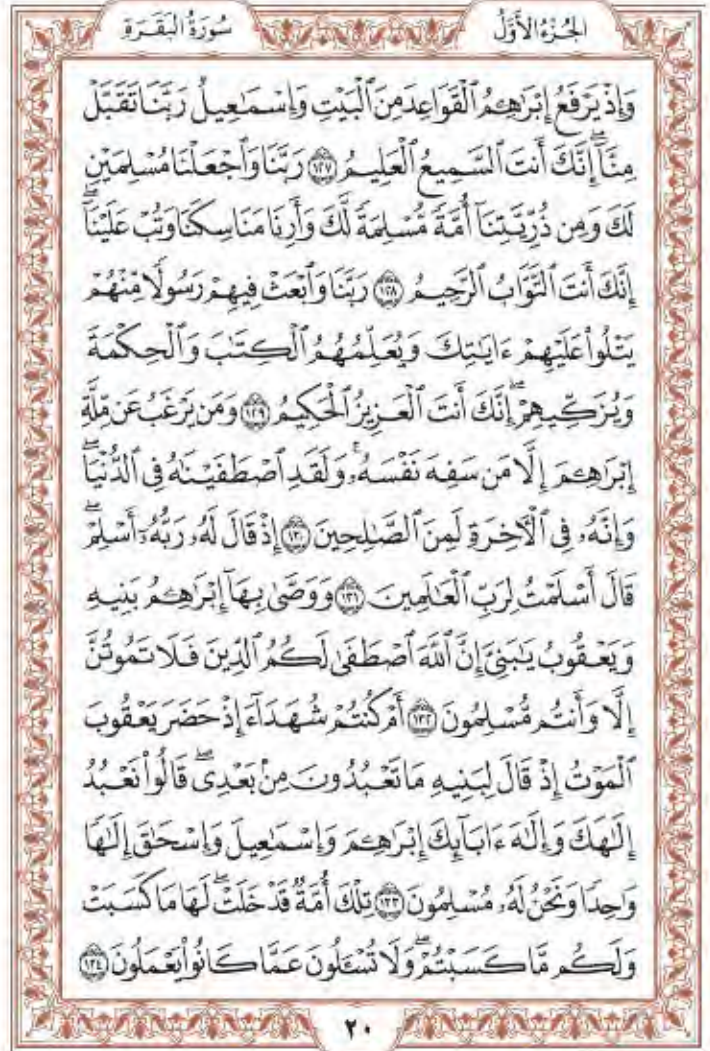 الجُزْءُ الأَوَّلُ
سُورَةُ البَقَرَةِ
وَإِذْ يَرْفَعُ إِبْرَٰهِـۧمُ ٱلْقَوَاعِدَ مِنَ ٱلْبَيْتِ وَإِسْمَٰعِيلُ رَبَّنَا تَقَبَّلْ
مِنَّآۖ إِنَّكَ أَنتَ ٱلسَّمِيعُ ٱلْعَلِيمُ ١٢٧ رَبَّنَا وَٱجْعَلْنَا مُسْلِمَيْنِ
لَكَ وَمِن ذُرِّيَّتِنَآ أُمَّةً مُّسْلِمَةً لَّكَ وَأَرِنَا مَنَاسِكَنَا وَتُبْ عَلَيْنَآۖ
إِنَّكَ أَنتَ ٱلتَّوَّابُ ٱلرَّحِيمُ ١٢٨ رَبَّنَا وَٱبْعَثْ فِيهِمْ رَسُولًا مِّنْهُمْ
يَتْلُوا۟ عَلَيْهِمْ ءَايَٰتِكَ وَيُعَلِّمُهُمُ ٱلْكِتَٰبَ وَٱلْحِكْمَةَ
وَيُزَكِّيهِمْۖ إِنَّكَ أَنتَ ٱلْعَزِيزُ ٱلْحَكِيمُ ١٢٩ وَمَن يَرْغَبُ عَن مِّلَّةِ
إِبْرَٰهِـۧمَ إِلَّا مَن سَفِهَ نَفْسَهُۥۚ وَلَقَدِ ٱصْطَفَيْنَٰهُ فِى ٱلدُّنْيَاۖ
وَإِنَّهُۥ فِى ٱلْءَاخِرَةِ لَمِنَ ٱلصَّٰلِحِينَ ١٣٠ إِذْ قَالَ لَهُۥ رَبُّهُۥٓ أَسْلِمْۖ
قَالَ أَسْلَمْتُ لِرَبِّ ٱلْعَٰلَمِينَ ١٣١ وَوَصَّىٰ بِهَآ إِبْرَٰهِـۧمُ بَنِيهِ
وَيَعْقُوبُ يَٰبَنِىَّ إِنَّ ٱللَّهَ ٱصْطَفَىٰ لَكُمُ ٱلدِّينَ فَلَا تَمُوتُنَّ
إِلَّا وَأَنتُم مُّسْلِمُونَ ١٣٢ أَمْ كُنتُمْ شُهَدَآءَ إِذْ حَضَرَ يَعْقُوبَ
ٱلْمَوْتُ إِذْ قَالَ لِبَنِيهِ مَا تَعْبُدُونَ مِنۢ بَعْدِىۖ قَالُوا۟ نَعْبُدُ
إِلَٰهَكَ وَإِلَٰهَ ءَابَآئِكَ إِبْرَٰهِـۧمَ وَإِسْمَٰعِيلَ وَإِسْحَٰقَ إِلَٰهًا
وَٰحِدًا وَنَحْنُ لَهُۥ مُسْلِمُونَ ١٣٣ تِلْكَ أُمَّةٌ قَدْ خَلَتْۖ لَهَا مَا كَسَبَتْ
وَلَكُم مَّا كَسَبْتُمْۖ وَلَا تُسْـَٔلُونَ عَمَّا كَانُوا۟ يَعْمَلُونَ ١٣٤
٢٠